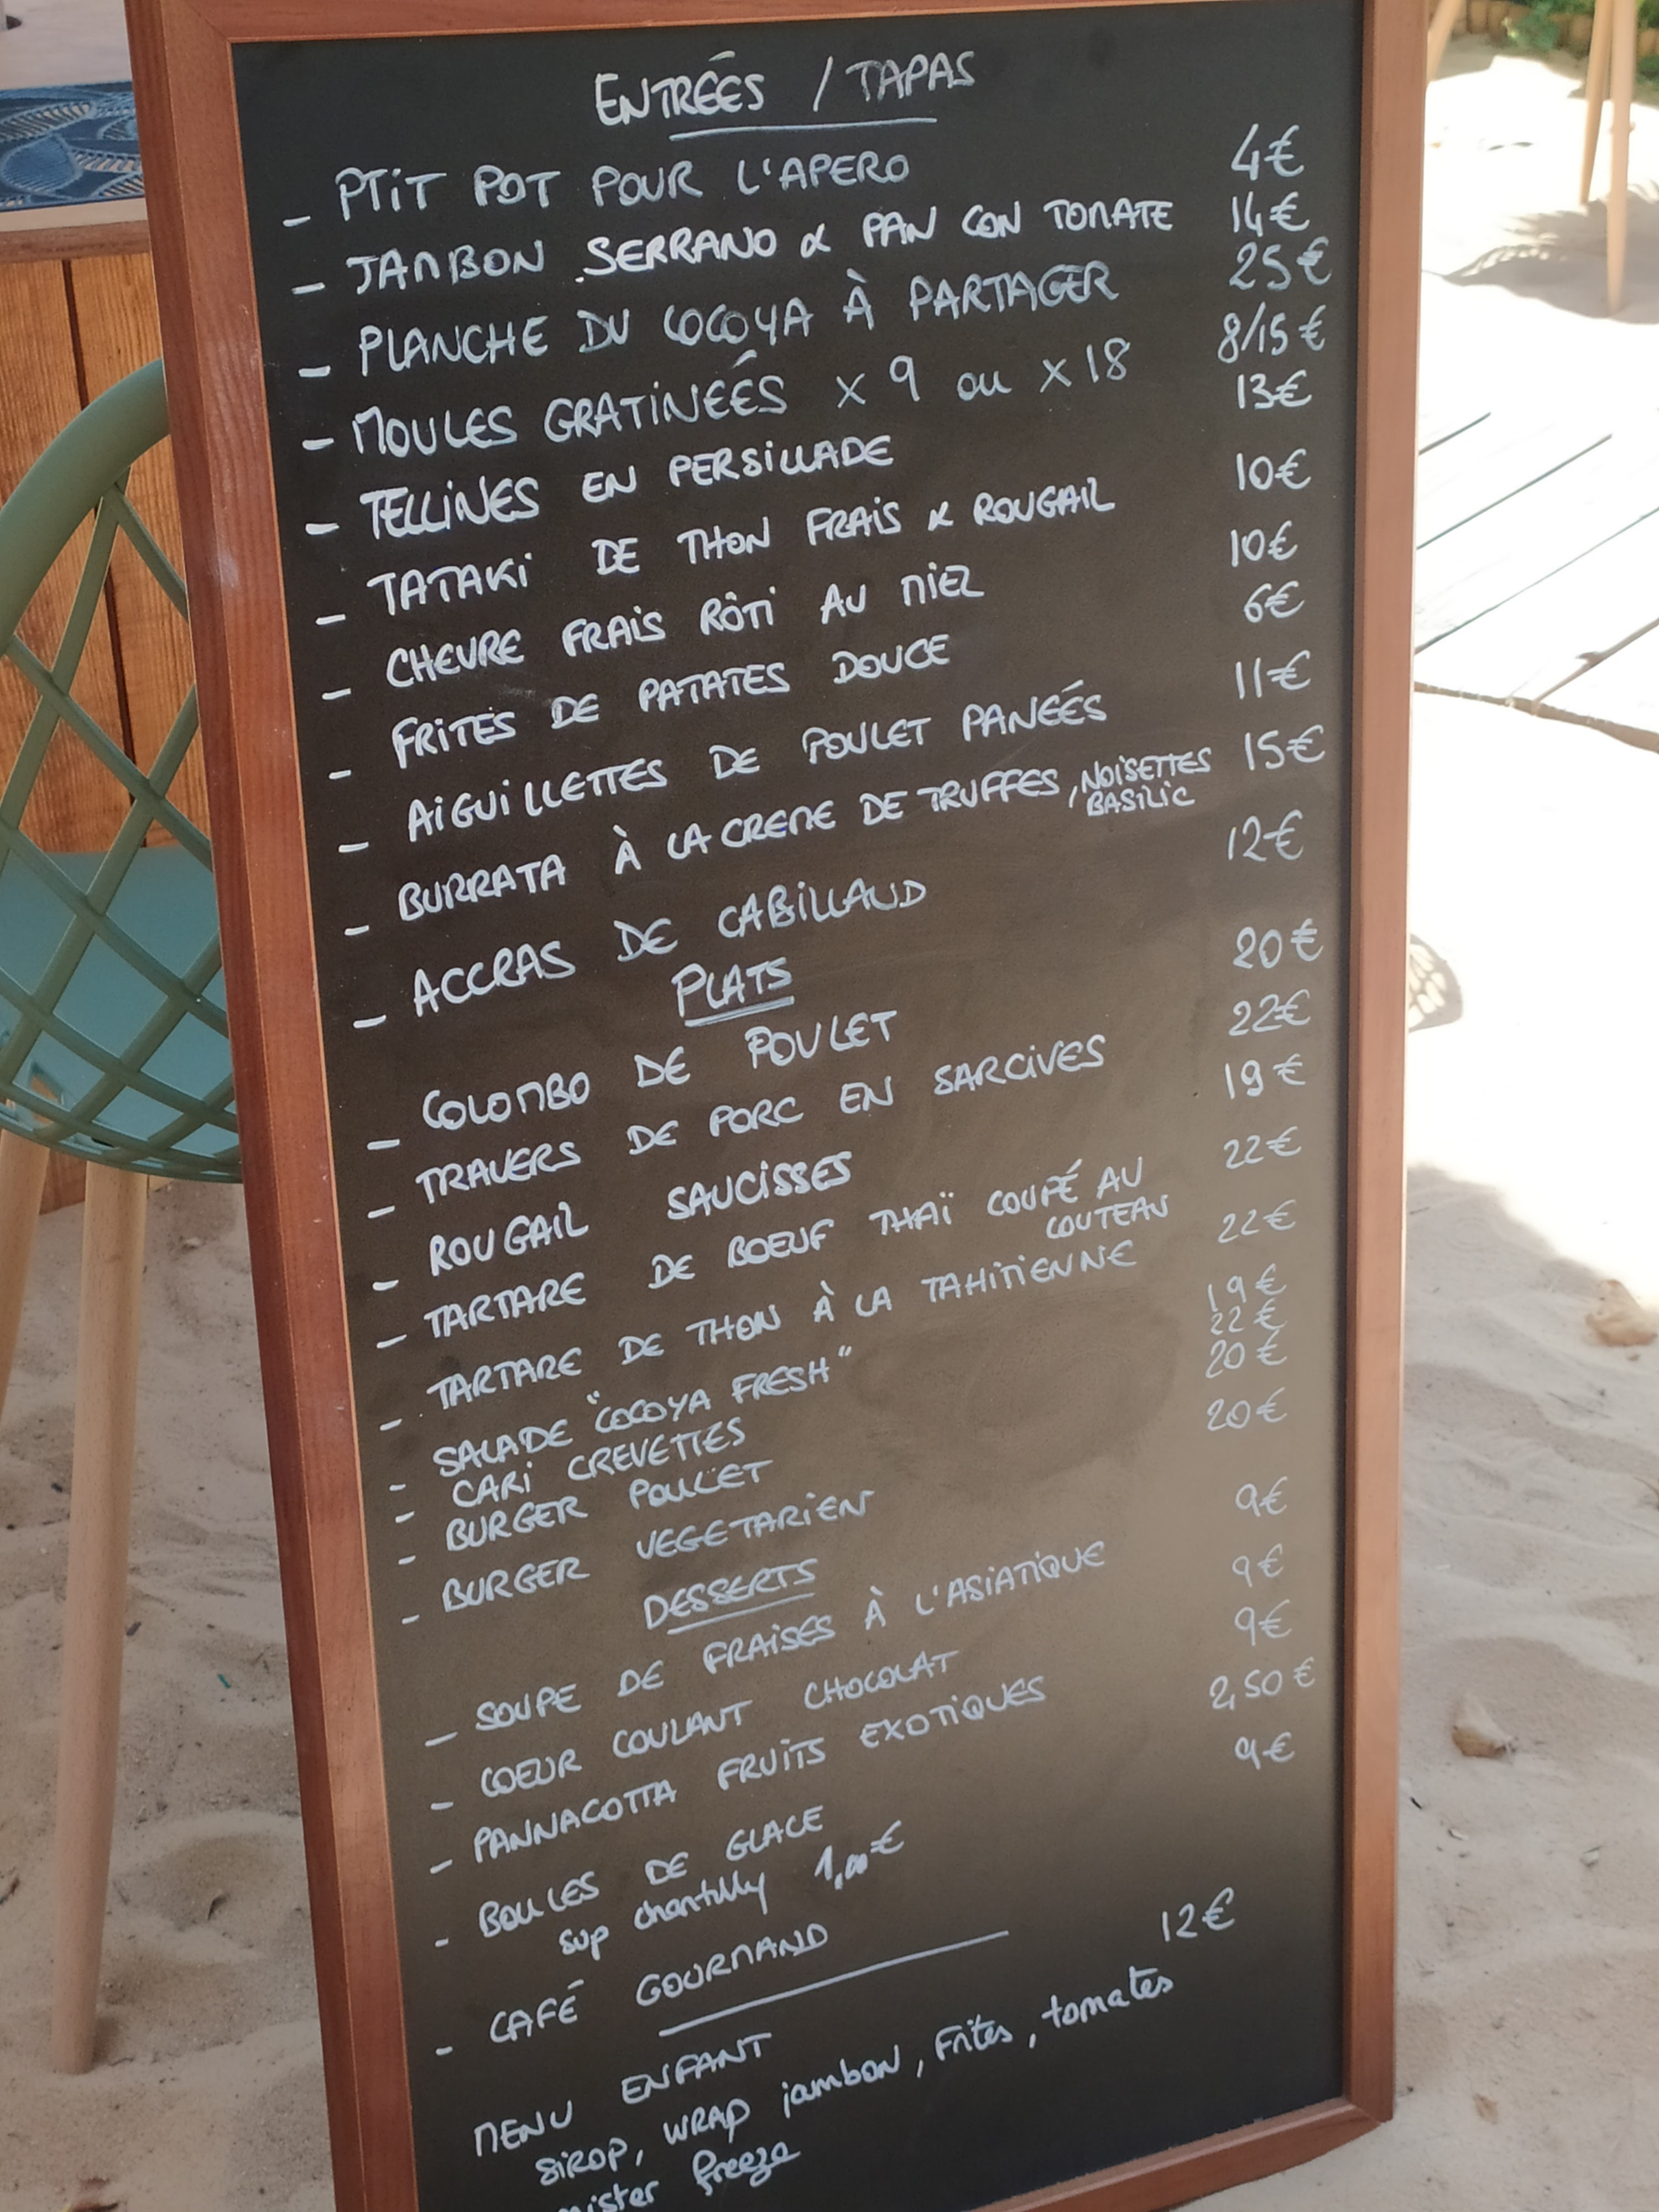 ENTRÉES / TAPAS
- PTIT POT POUR L'APERO 4€
- JAMBON SERRANO & PAN CON TOMATE 14€
- PLANCHE DU COCOYA À PARTAGER 25€
- MOULES GRATINÉES x 9 ou x 18 8/15€
- TELLINES EN PERSILLADE 13€
- TATAKI DE THON FRAIS & ROUGAIL 10€
- CHEVRE FRAIS RÔTI AU MIEL 10€
- FRITES DE PATATES DOUCE 6€
- AIGUILLETTES DE POULET PANEÉS 11€
- BURRATA À LA CREME DE TRUFFES, NOISETTES 15€
BASILIC
- ACCRAS DE CABILLAUD 12€
PLATS
- COLOMBO DE POULET 20€
- TRAVERS DE PORC EN SARCIVES 22€
- ROUGAIL SAUCISSES 19€
- TARTARE DE BOEUF THAÏ COUPÉ AU 22€
COUTEAU
- TARTARE DE THON À LA TAHITIENNE 22€
- SALADE "COCOYA FRESH" 19€
- CARI CREVETTES 22€
- BURGER POULET 20€
- BURGER VEGETARIEN 20€
DESSERTS
- SOUPE DE FRAISES À L'ASIATIQUE 9€
- COEUR COULANT CHOCOLAT 9€
- PANNACOTTA FRUITS EXOTIQUES 9€
- BOULES DE GLACE 2,50€
sup chantilly 1,00€
- CAFÉ GOURMAND 9€
MENU ENFANT 12€
SIROP, WRAP jambon, Frites, tomates
mister freeze